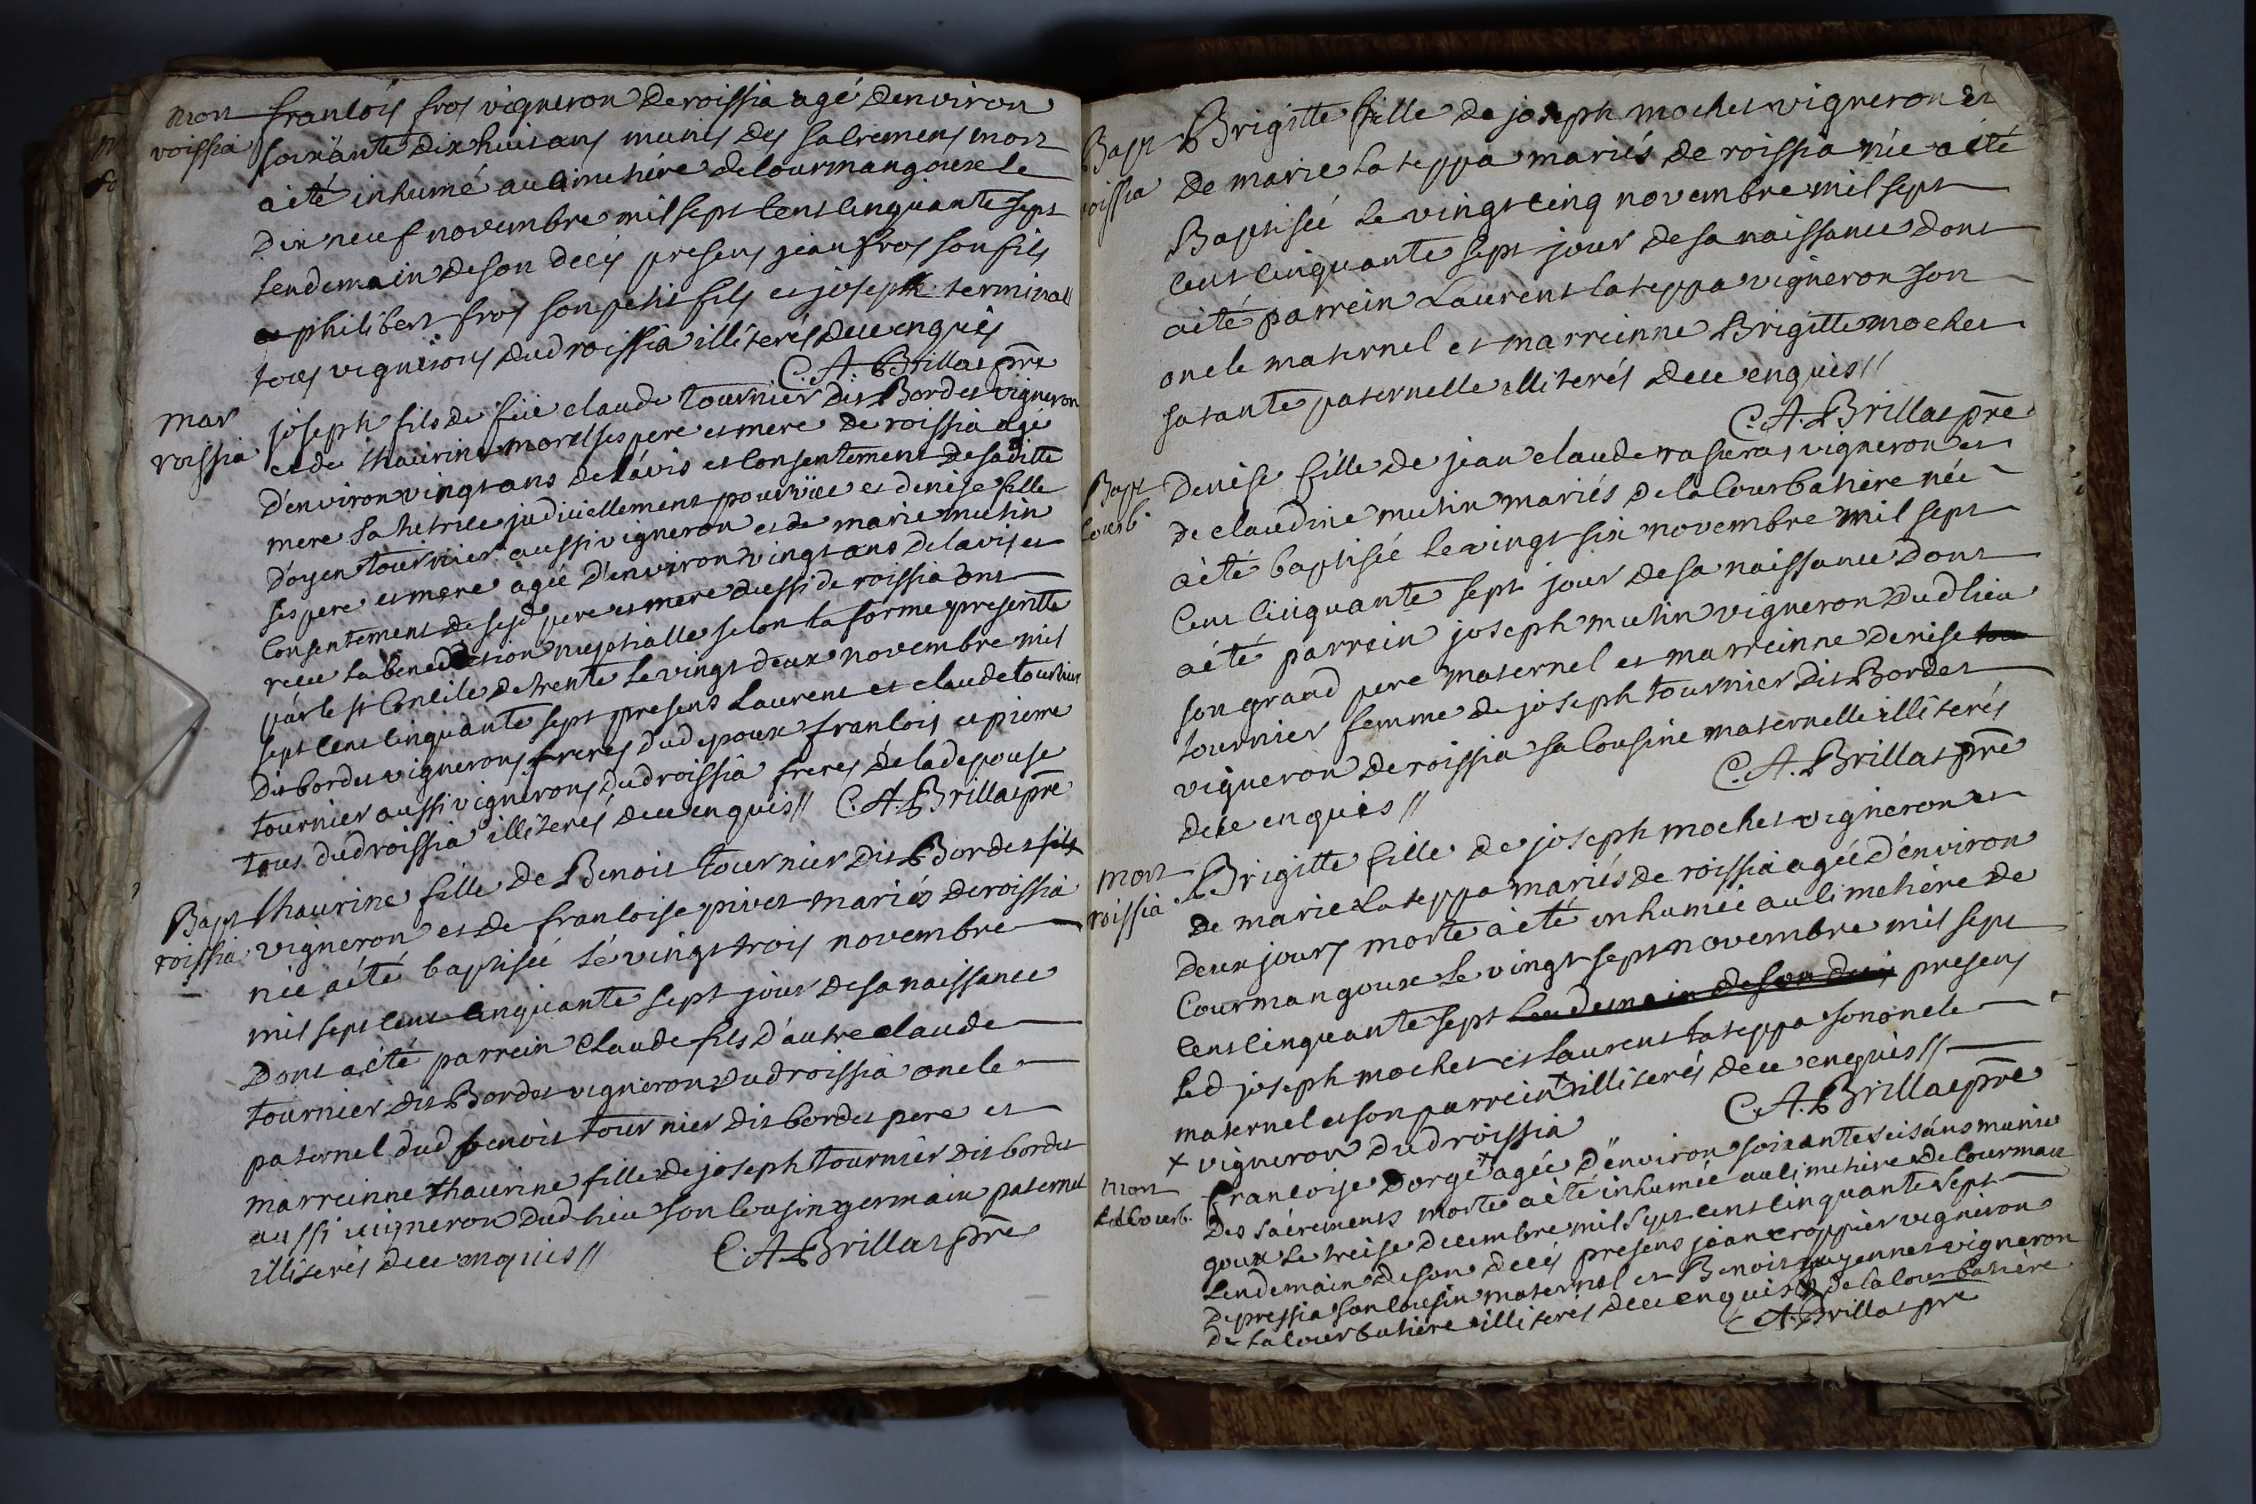 mort
roissia
francois fros vigneron de roissia agé denviron
soixante dix huit ans munis des sacremens mort
a eté inhumé au cimetiére de courmangoux le
dix neuf novembre mil sept cent cinquante sept
lendemain de son decés presens jean fros son fils
philibert fros son petit fils et joseph terminal
tous vignerons dud roissia illiterés de ce enquis
C. A. Brillat pre
mar
roissia
joseph fils de füe claude tournier dit Bordet vigneron
et de thaurine morel ses pere et mere de roissia agé
d'environ vingt ans de l'avis et consentement de sa ditte
mere sa tutrice judiciellement pourvüe et denise fille
d'oyen tournier aussi vigneron et de marie mutin
ses pere et mere agée d'environ vingt ans de lavis et
consentement de sesd pere et mere aussi de roissia ont
recu la benediction nuptialle selon la forme prescritte
par le st concile de trente le vingt deux novembre mil
sept cent cinquante sept presens Laurent et claude tournier
dit bordet vignerons freres dud epoux francois et pierre
tournier aussi vignerons dud roissia freres de lad epouse
tous dud roissia illiterés de ce enquis // C. A. Brillat pre
Bapt
roissia
thaurine fille de Benoit tournier dit Bordet fils
vigneron et de francoise pivet mariés de roissia
née a été baptisée le vingt trois novembre
mil sept cent cinquante sept jour de sa naissance
dont a été parrein claude fils d'autre claude
tournier dit Bordet vigneron dud roissia oncle
paternel dud benoit tournier dit bordet pere et
marreinne thaurine fille de joseph tournier dit bordet
aussi vigneron dud lieu son cousin germain paternel
illiterés de ce enquis // C. A. Brillat pre
Bapt
roissia
Brigitte fille de joseph mochet vigneron et
de marie Lateppa mariés de roissia née a été
Baptisée le vingt cinq novembre mil sept
cent cinquante sept jour de sa naissance dont
a été parrein Laurent lateppa vigneron son
oncle maternel et marreinne Brigitte mochet
sa tante paternelle illiterés de ce enquis //
C. A. Brillat pre
Bapt
courb.
Denise fille de jean claude vigneron et
de claudine mutin mariés de la Courbatiere née
a été baptisée le vingt six novembre mil sept
cent cinquante sept jour de sa naissance dont
a été parrein joseph mutin vigneron dud lieu
son grand pere maternel et marreinne denise tou
tournier femme de joseph tournier dit Bordet
vigneron de roissia sa cousine maternelle illiterés
de ce enquis // C. A. Brillat pre
mort
roissia
Brigitte fille de joseph mochet vigneron et
de marie Lateppa mariés de roissia agée d'environ
deux jours morte a été inhumée au cimetiére de
Courmangoux le vingt sept novembre mil sept
cent cinquante sept lendemain de son decés presens
led joseph mochet et Laurent lateppa son oncle
maternel et son parrein + illiterés de ce enquis //
+ vigneron dud roissia C. A. Brillat pre
mort
La Courb.
francoise Dorge + agée d'environ soixante seis ans munie
des sacrements morte a été inhumée au cimetiére de Courman
goux le treise decembre mil sept cent cinquante sept
Lendemain de son decés presens jean croppier vigneron
de pressia son cousin maternel et Benoit vigneron
de la Courbatiére illiterés de ce enquis de la courbatiére
C. A. Brillat pre